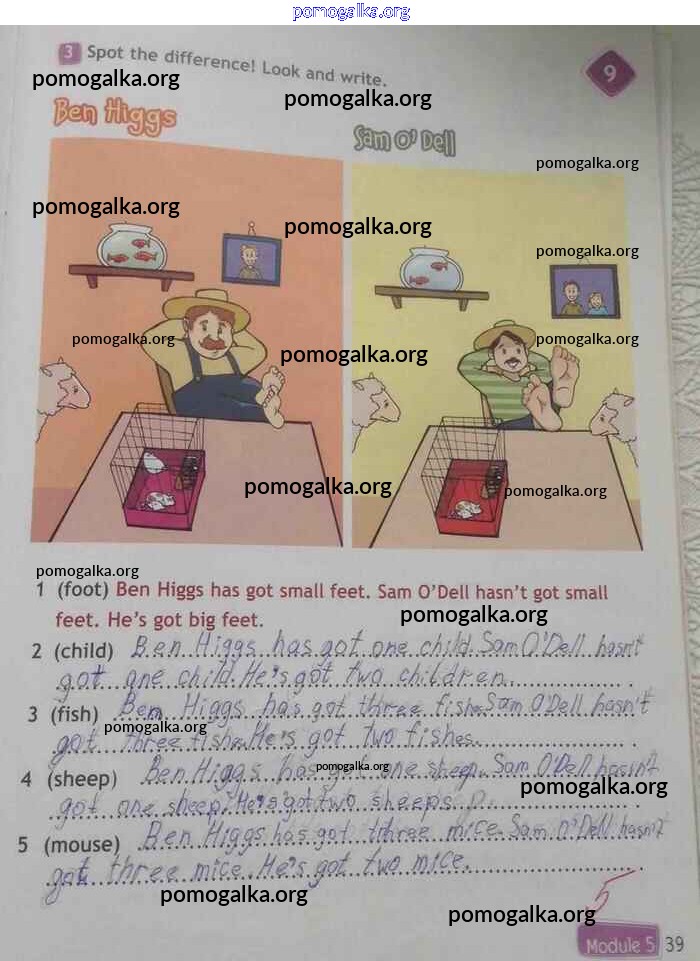 pomogalka.org
3 Spot the difference! Look and write.
pomogalka.org
pomogalka.org
9
Ben Higgs
Sam O'Dell
pomogalka.org
pomogalka.org
pomogalka.org
pomogalka.org
pomogalka.org
pomogalka.org
pomogalka.org
pomogalka.org
pomogalka.org
pomogalka.org
1 (foot) Ben Higgs has got small feet. Sam O'Dell hasn't got small
feet. He's got big feet.
pomogalka.org
2 (child) Ben Higgs has got one child. Sam O'Dell hasn't
got one child. He's got two children.
3 (fish) Ben Higgs has got three fishe. Sam O'Dell hasn't
pomogalka.org
got three fishe. He's got two fishes.
pomogalka.org
4 (sheep) Ben Higgs has got one sheep. Sam O'Dell hasn't
pomogalka.org
got one sheep. He's got two sheeps
5 (mouse) Ben Higgs has got three mice. Sam O'Dell hasn't
got three mice. He's got two mice.
pomogalka.org
5
pomogalka.org
Module 5 39